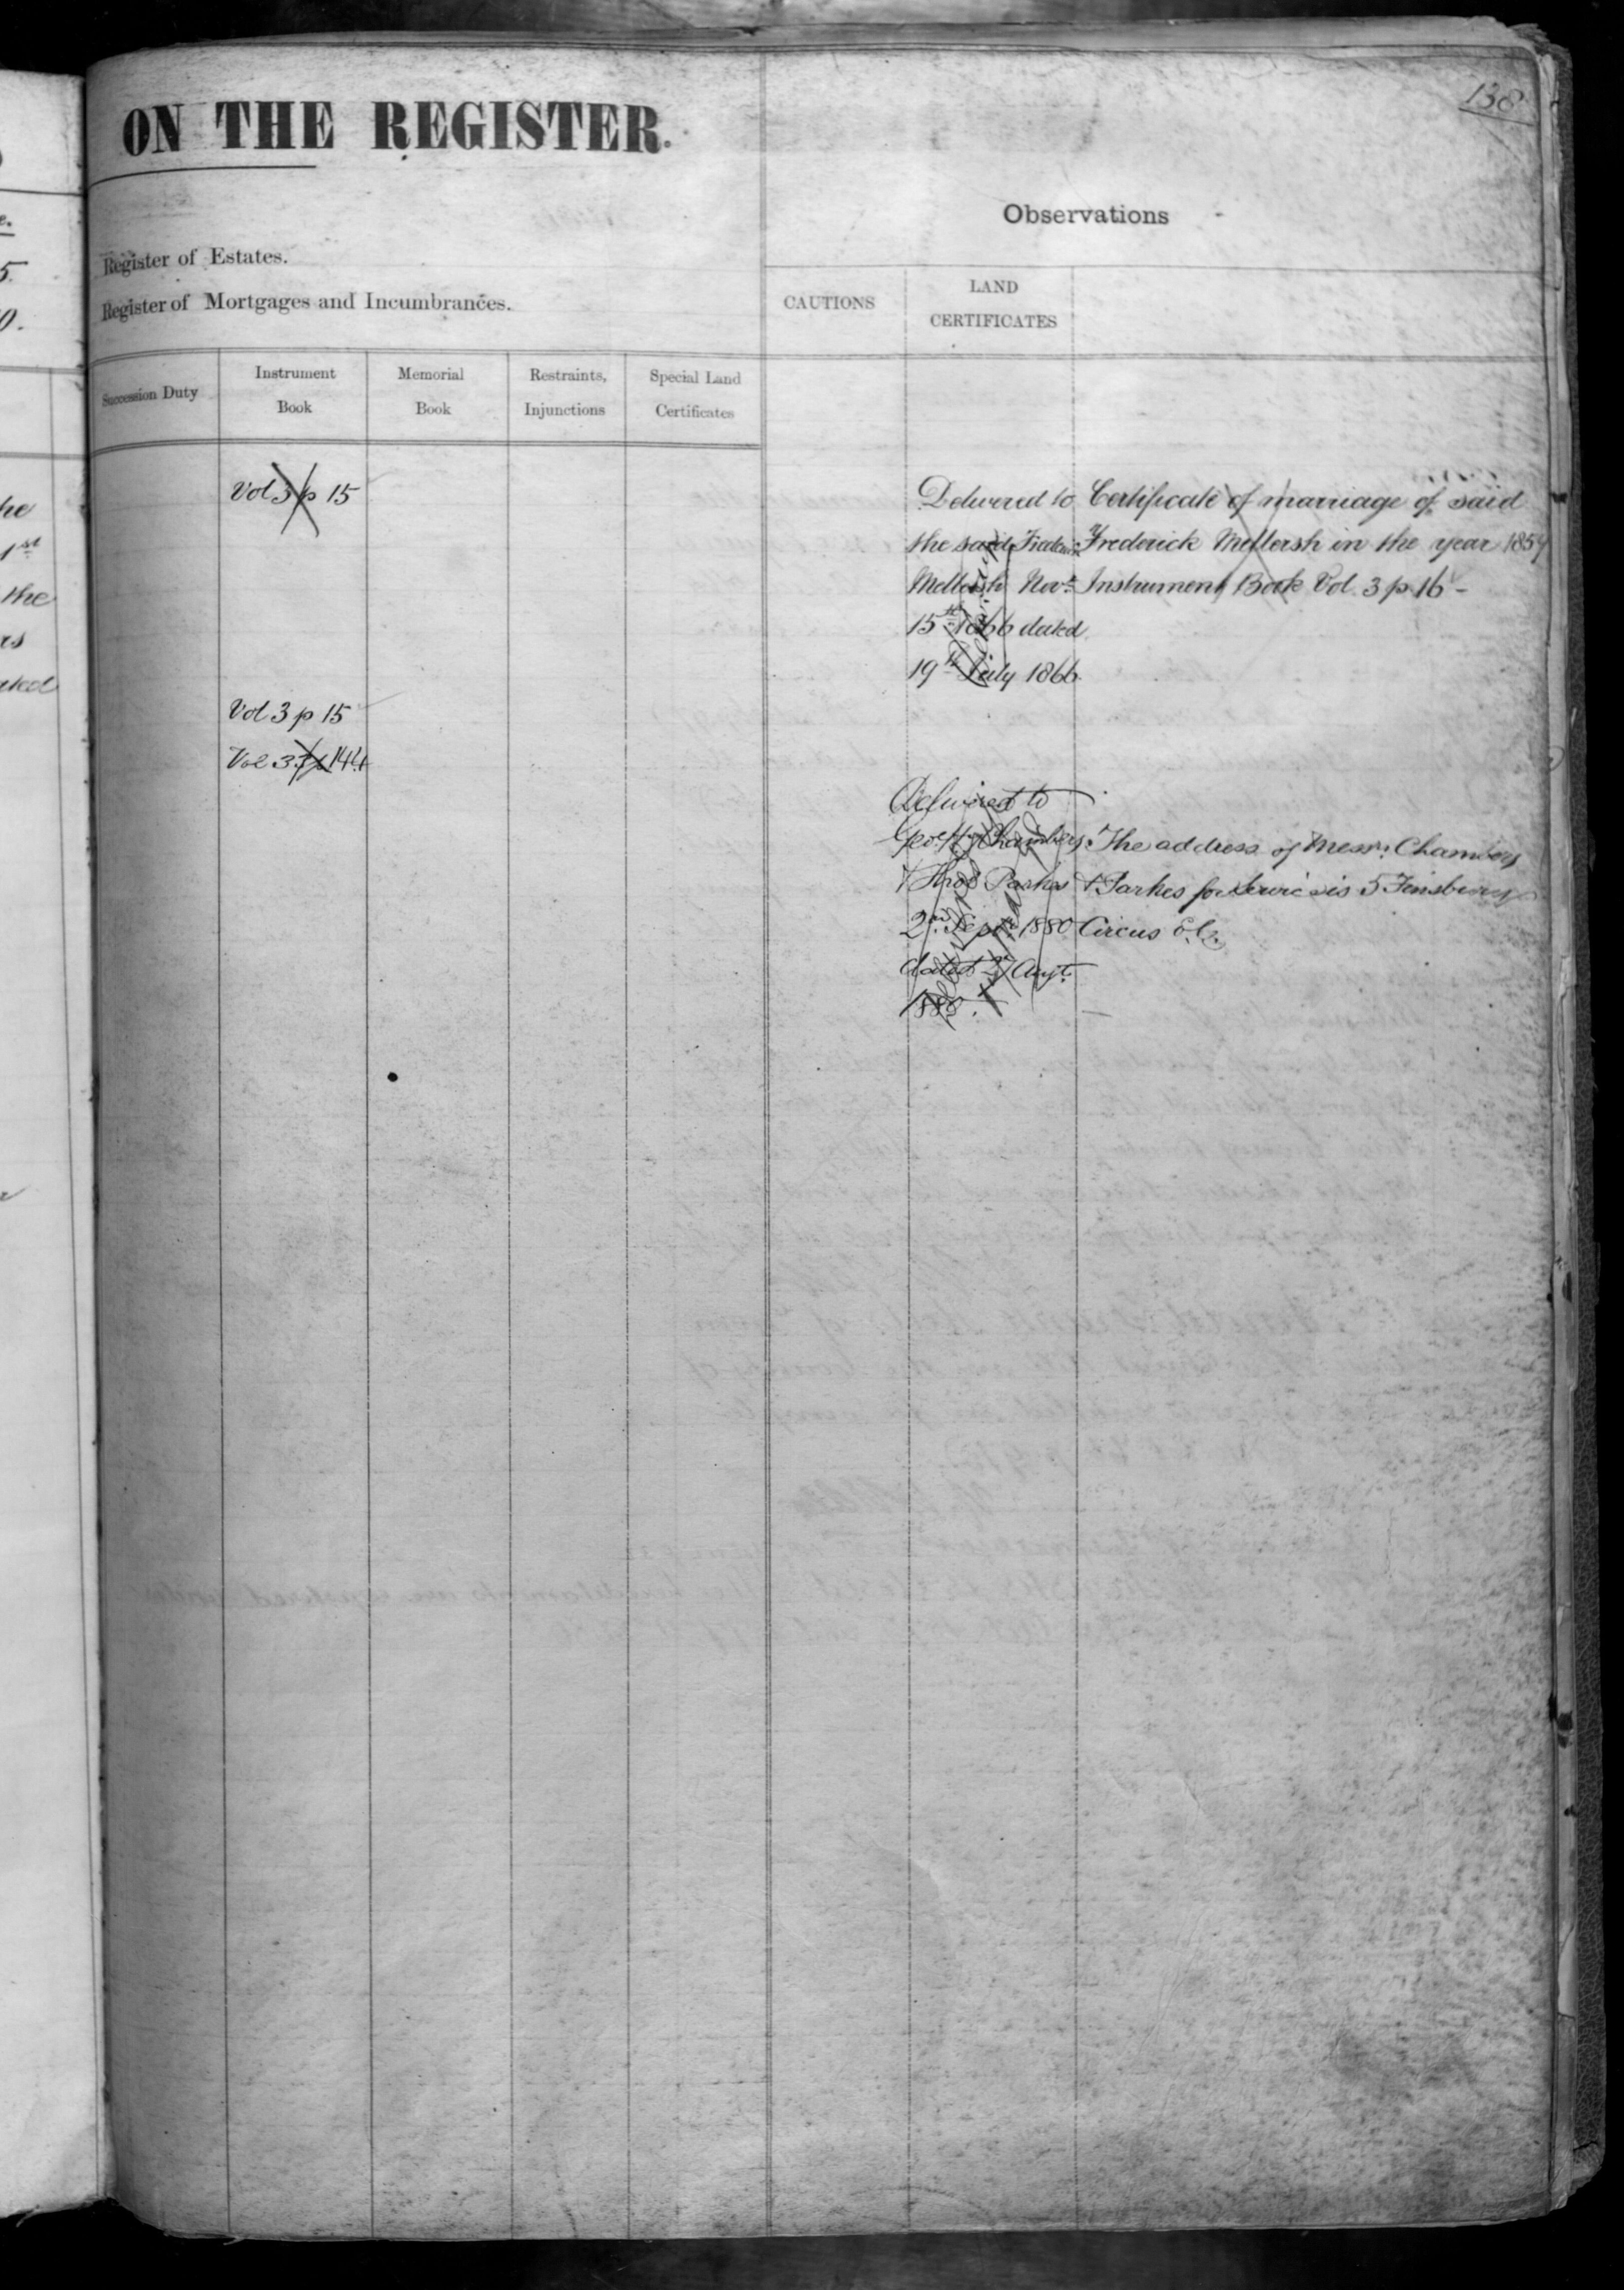 138
ON THE REGISTER.
Observations
Register of Estates.
Register of Mortgages and Incumbrances.
CAUTIONS
LAND
CERTIFICATES
Succession Duty
Instrument
Book
Memorial
Book
Restraints,
Injunctions
Special Land
Certificates
Vol 3 p 15
Delivered to
the said Frederick
Mellersh Novr
15th 1866 dated
19th July 1866.
Certificate of marriage of said
Frederick Mellersh in the year 1859
Instrument Book Vol. 3 p. 16 -
Vol 3 p 15
Vol 33 p 144
Delivered to
Geo. Hy Chambers
& Thos Parkes
2nd Sepr 1880
dated 27 Augt.
1880.
The address of Messrs. Chambers
& Parkes for service is 5 Finsbury
Circus E.C.
he
1st
the
rs
5.
0.